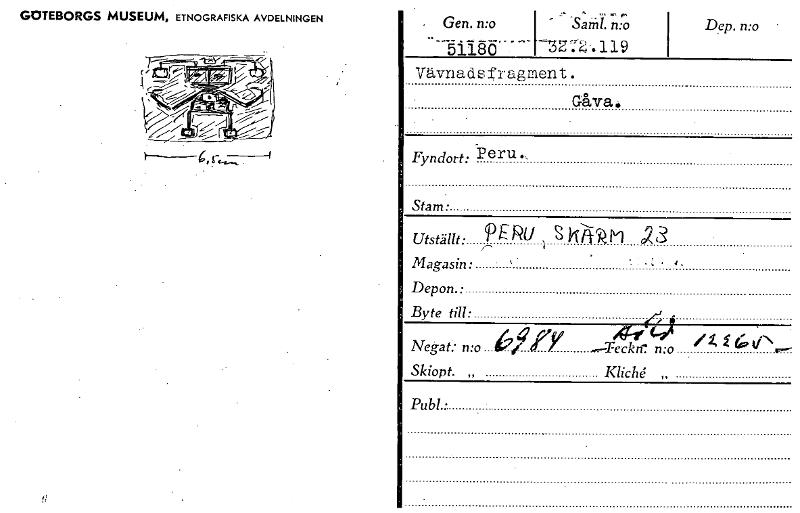 GÖTEBORGS MUSEUM, ETNOGRAFISKA AVDELNINGEN
6,5cm
Gen. n:o Saml. n:o Dep. n:o
51180 32.2.119
Vävnadsfragment.
Gåva.
Fyndort: Peru.
Stam:
Utställt: PERU, SKÄRM 23
Magasin:
Depon.:
Byte till:
Negat: n:o 6984 Teckn. n:o 12265
Skiopt. „ Kliché „
Publ.: